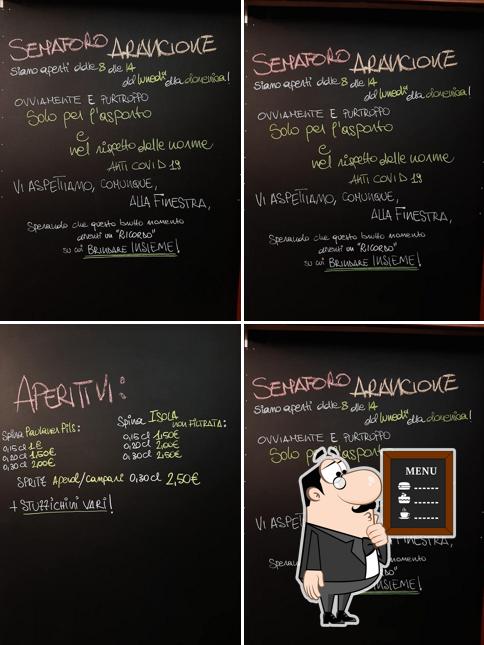 SEMAFORO ARANCIONE
Siamo aperti dalle 8 alle 14
dal lunedì alla domenica!
OVVIAMENTE E PURTROPPO
Solo per l'asporto
e
nel rispetto delle norme
ANTI COVID 19
VI ASPETTIAMO, COMUNQUE,
ALLA FINESTRA,
Sperando che questo brutto momento
diventi un "RICORDO"
su cui BRINDARE INSIEME!
SEMAFORO ARANCIONE
Siamo aperti dalle 8 alle 14
dal lunedì alla domenica!
OVVIAMENTE E PURTROPPO
Solo per l'asporto
e
nel rispetto delle norme
ANTI COVID 19
VI ASPETTIAMO, COMUNQUE,
ALLA FINESTRA,
Sperando che questo brutto momento
diventi un "RICORDO"
su cui BRINDARE INSIEME!
APERITIVI:
Spina Paulaner Pils:
0,15 cl 1€
0,20 cl 1,50€
0,30 cl 2,00€
Spina ISOLA
NON FILTRATA:
0,15 cl 1,50€
0,20 cl 2,00€
0,30 cl 2,50€
SPRITZ Aperol/campari 0,30 cl 2,50€
+ STUZZICHINI VARI!
SEMAFORO ARANCIONE
Siamo aperti dalle 8 alle 14
dal lunedì alla domenica!
OVVIAMENTE E PURTROPPO
Solo per
MENU
VI ASPET
FINESTRA,
momento
INSIEME!